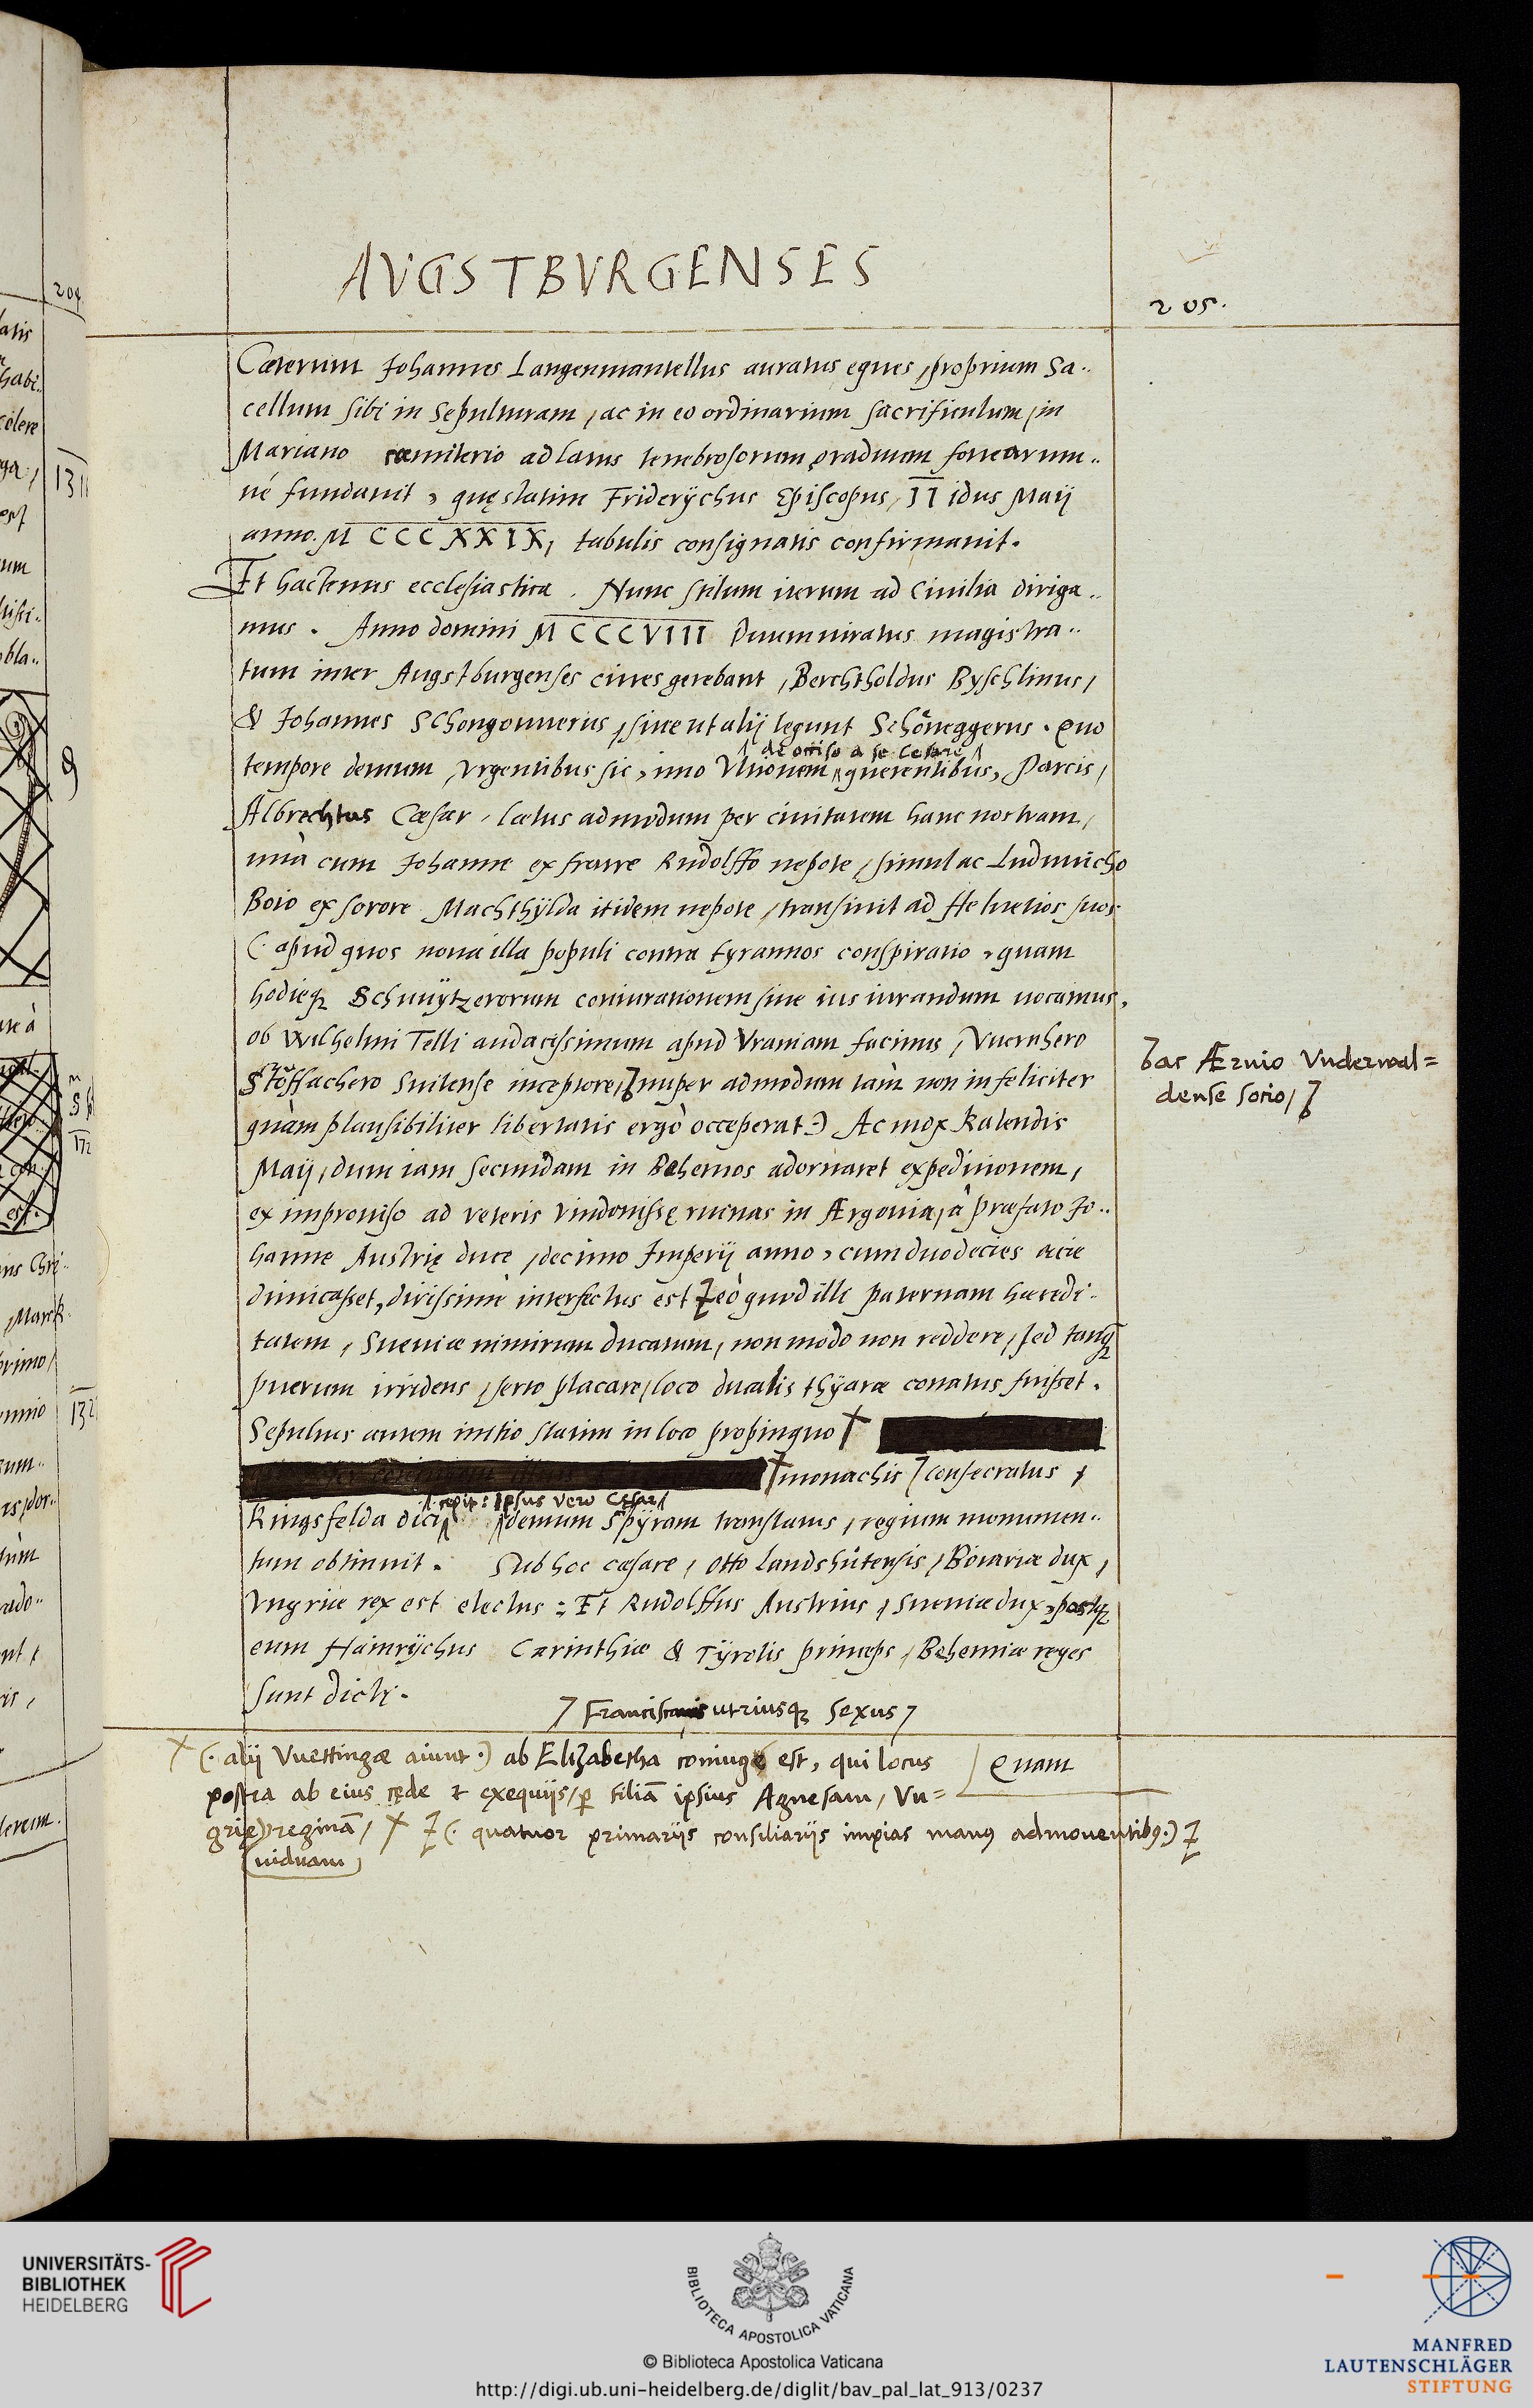 AVGSTBVRGENSES
205.
Cæterum Johannes Langenmantellus auratus eques, proprium Sa..
cellum sibi in Sepulturam, ac in eo ordinarium sacrificulum, in
Mariano cœmiterio ad latus tenebrosorum graduum
né fundauit, quę statim Friderÿchus Episcopus, II idus Maÿ
anno. M CCC XXIX, tabulis consignatis confirmauit.
Et hactenus ecclesiastica. Nunc stilum iterum ad Ciuilia diriga..
mus. Anno domini M CCC VIII Duumuiratus magistra..
tum inter Augstburgenses ciues gerebant, Berchtholdus Byschlinus,
& Johannes Schongouuerus, siue ut alÿ legunt Schöneggerus. Quo
de occiso a se Cesare
tempore demum, vrgentibus sic, imo Vltionem querentibus, Parcis,
Albrechtus Cæsar, lætus admodum per ciuitatem hanc nostram,
unà cum Johanne ex fratre Rudolffo nepote, simul ac Luduuicho
Boio ex sorore Machthÿlda itidem nepote, transiuit ad Heluetios suos
(. apud quos noua illa populi contra tyrannos conspiratio, quam
hodieq; Schuuÿtzerorum coniurationem siue ius iurandum uocamus,
ob Wilhelmi Telli audacissimum apud Vraniam facinus, Vuernhero
Stöffachero Suitense inceptore, nuper admodum tam non infeliciter
ac Ærnio Vnderwal=
dense socio,
quàm plausibiliter libertatis ergò occeperat.) Ac mox Kalendis
Maÿ, dum iam secundam in Bohemos adornaret expeditionem,
ex improuiso ad veteris Vindonissę ruinas in Ærgouia, à præfato Jo..
hanne Austrię duce, decimo Imperÿ anno, cum duodecies acie
dimicasset, dirissimè interfectus est eò quod illi paternam hæredi..
tatem, Sueuiæ nimirum ducatum, non modo non reddere, sed tanq;
puerum irridens, serto placare, loco ducalis thÿaræ conatus fuisset.
Sepultus autem initio statim in loco propinquo †
† monachis consecratus,
cepit: ipsus vero Cęsar
Kingsfelda dici demum Spÿram translatus, regium monumen..
tum obtinuit. Sub hoc cæsare, Otto Landshůtensis, Boiariæ dux,
Vngriæ rex est electus: Et Rudolffus Austrius, Sueuiæ dux, postq;
eum Hainrÿchus Carinthiæ & Tÿrolis princeps, Bohemiæ reges
sunt dicti.
Franciscanis utriusq; sexus
† (. alÿ Vuettingæ aiunt.) ab Elizabetha coniuge est, qui locus
Quam
postea ab eius cęde & exequiis, p filiā ipsius Agnesam, Vn=
grię reginā, † (. quatuor primariis consiliariis impias manus admouentibus.)
uiduam
204
UNIVERSITÄTS-
BIBLIOTHEK
HEIDELBERG
BIBLIOTECA APOSTOLICA VATICANA
© Biblioteca Apostolica Vaticana
http://digi.ub.uni-heidelberg.de/diglit/bav_pal_lat_913/0237
MANFRED
LAUTENSCHLÄGER
STIFTUNG